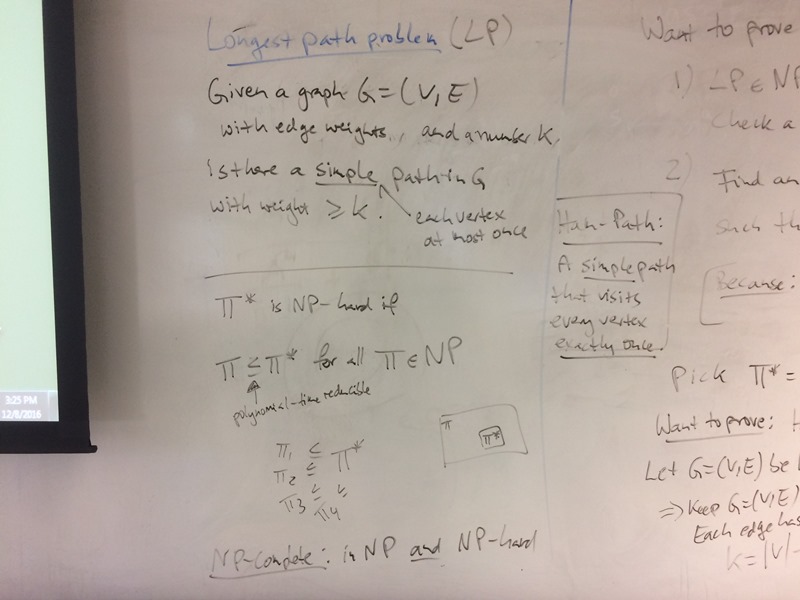 Longest path problem (LP)
Given a graph G=(V,E)
with edge weights, and a number K,
is there a simple path in G
with weight ≥ K.
each vertex
at most once
π* is NP-hard if
π ≤ π* for all π ∈ NP
polynomial-time reducible
π1 ≤ π*
π2 ≤
π3 ≤ ≤
π4
π
π*
NP-complete: in NP and NP-hard
3:25 PM
12/8/2016
Ham-Path:
A simple path
that visits
every vertex
exactly once.
Want to prove
1) LP ∈ NP
Check a
2) Find an
such th
Because:
Pick π* =
Want to prove: H
Let G=(V,E) be
⇒ Keep G=(V,E)
Each edge has
K=|V|-